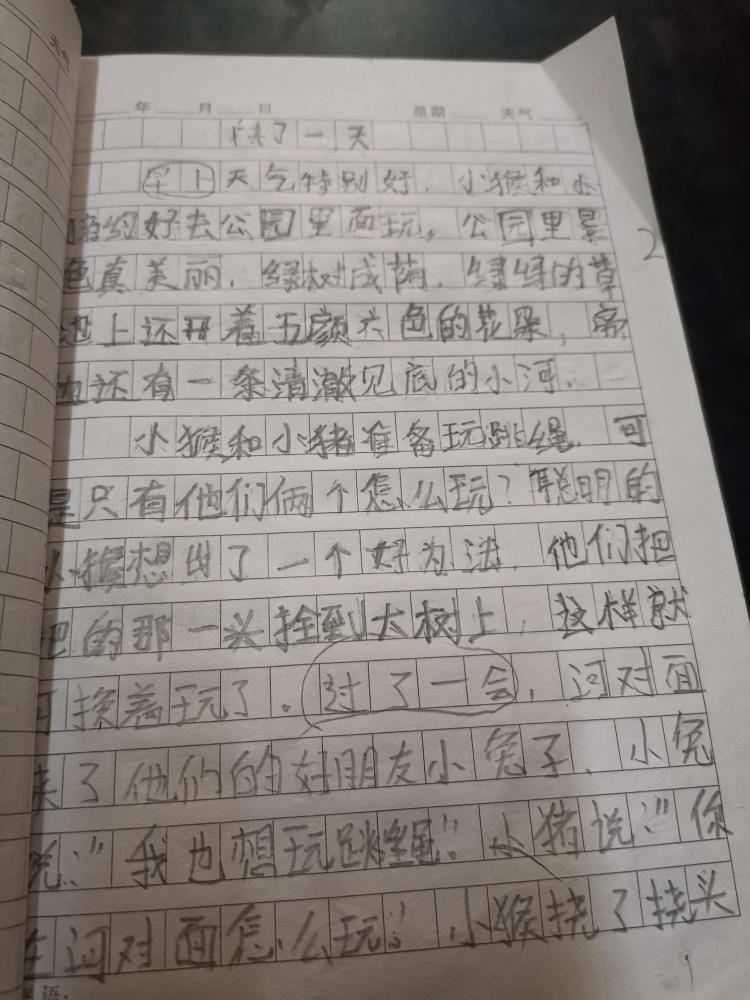 天气
年 月 日 星期 天气
快了一天
早上天气特别好．小猴和小
猪约好去公园里面玩，公园里景
色真美丽．绿树成荫．绿绿的草
地上还开着五颜六色的花朵，旁
边还有一条清澈见底的小河．
小猴和小猪准备玩跳绳．可
是只有他们俩个怎么玩？聪明的
小猴想出了一个好办法．他们把
的那一头拴到大树上，这样就
可换着玩了。过了一会，河对面
来了他们的好朋友小兔子、小兔
说：“我也想玩跳绳！”小猪说：“你
在河对面怎么玩！”小猴挠了挠头
2